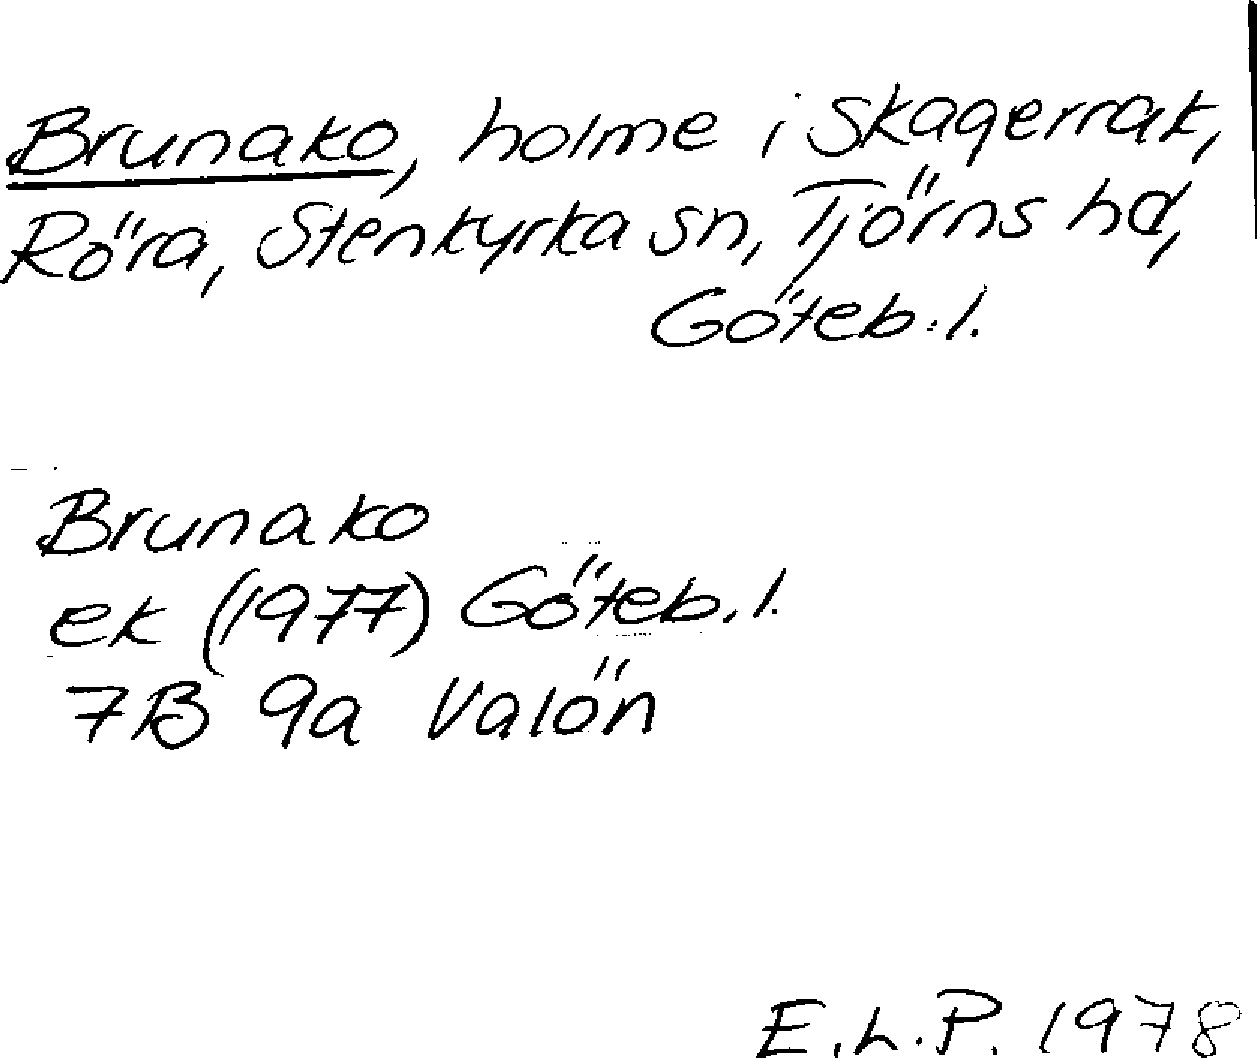 Brunako, holme i Skagerrak,
Röra, Stenkyrka sn, Tjörns hd,
Göteb.l.
Brunako
ek (1977) Göteb.l.
7B 9a Valön
E.L.P. 1978